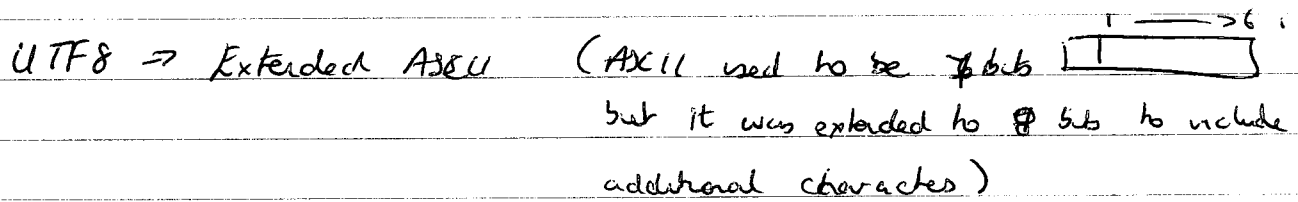 1 → 6
UTF8 => Extended ASCII (ASCII used to be bits
but it was extended to 8 bits to include
additional characters)